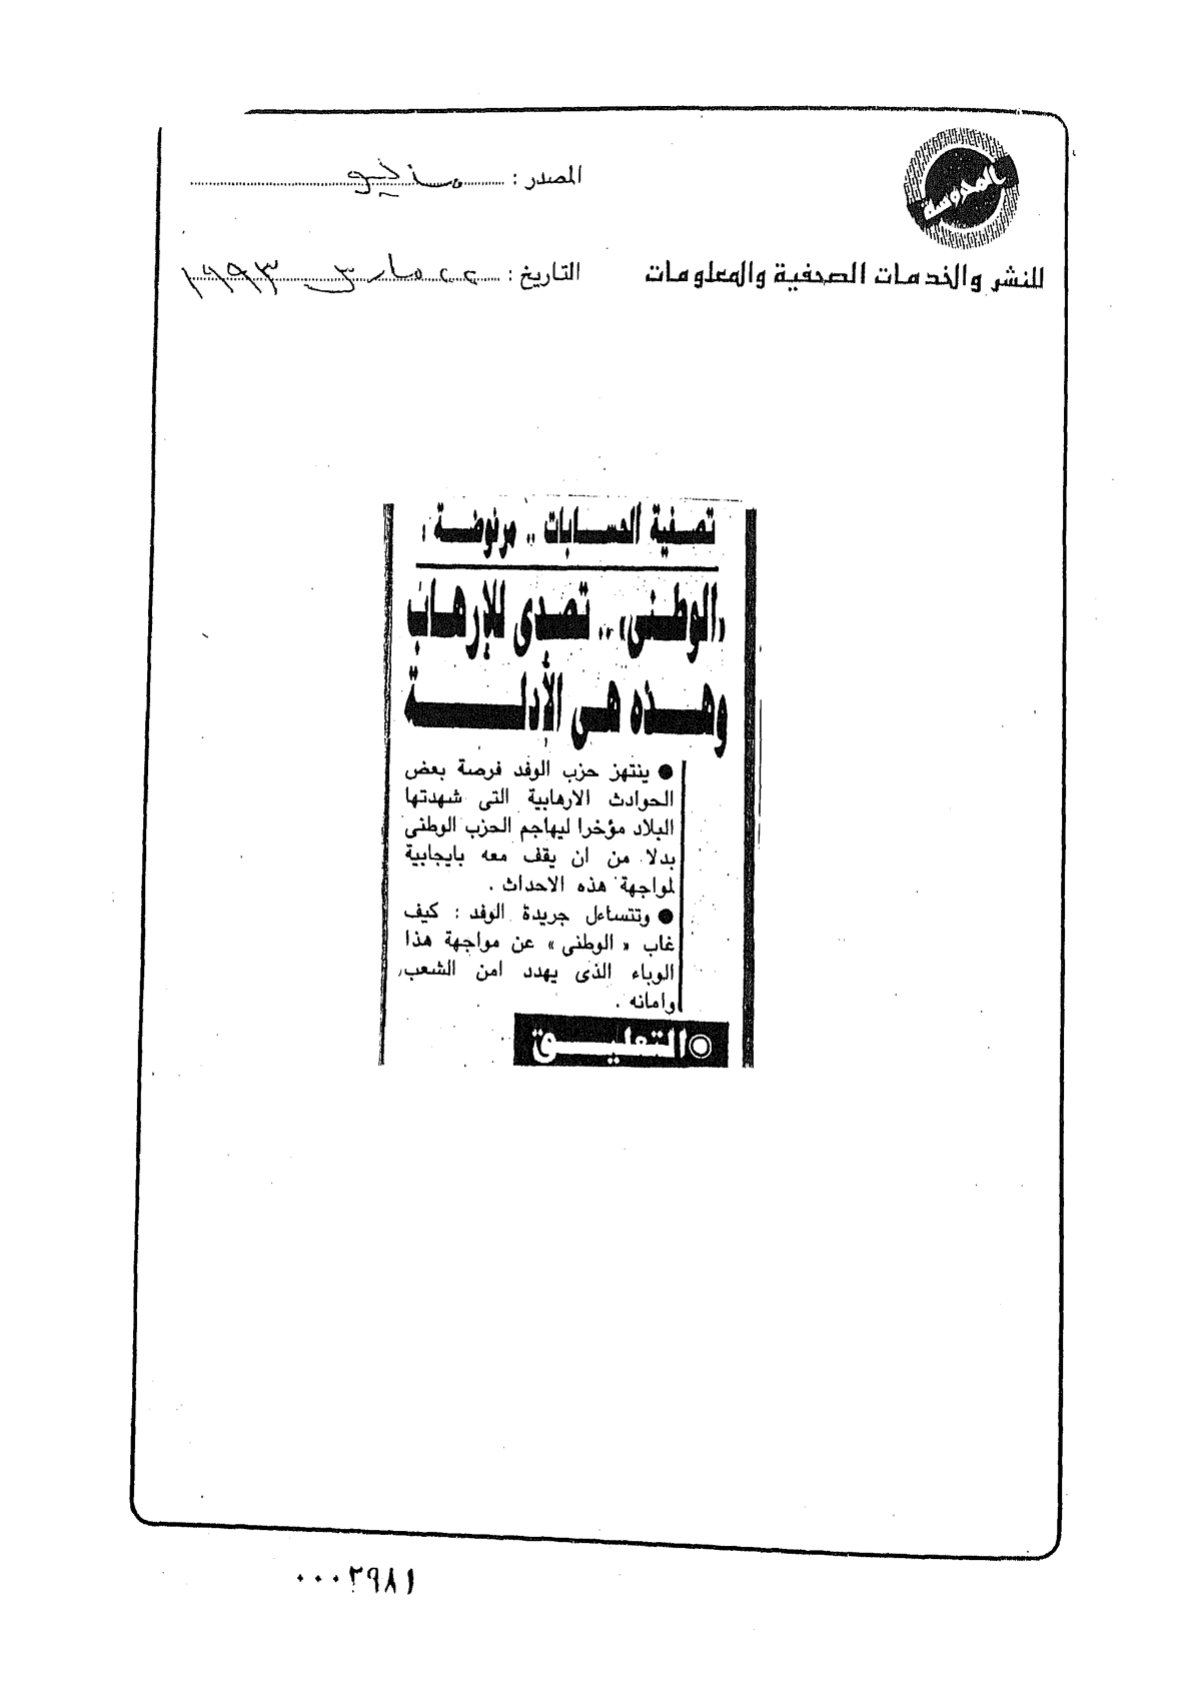 المحروسة
للنشر والخدمات الصحفية والمعلومات
المصدر :
التاريخ : ٢٢ مارس ١٩٩٣
تصفية الحسابات .. مرفوضة :
«الوطنى» .. تصدى للإرهاب
وهذه هى الأدلة
● ينتهز حزب الوفد فرصة بعض
الحوادث الارهابية التى شهدتها
البلاد مؤخرا ليهاجم الحزب الوطنى
بدلا من ان يقف معه بايجابية
لمواجهة هذه الاحداث .
● وتتساءل جريدة الوفد : كيف
غاب « الوطنى » عن مواجهة هذا
الوباء الذى يهدد امن الشعب
وامانه .
التعليق
٠٠٠٢٩٨١